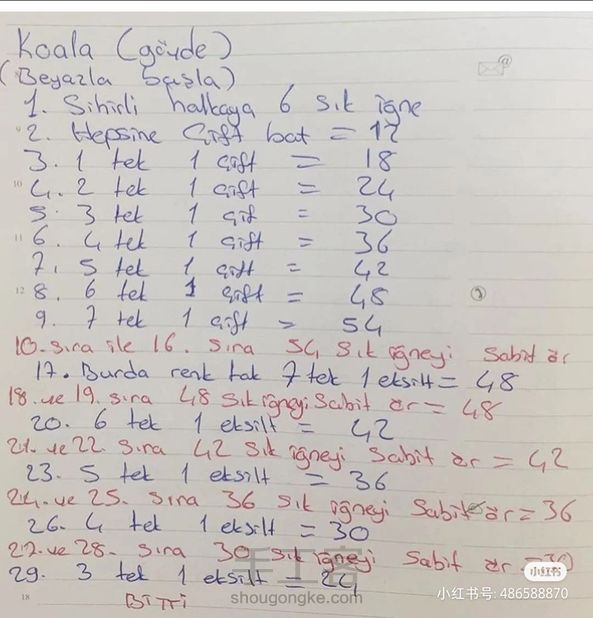 Koala (gövde)
(Beyazla başla)
1. Sihirli halkaya 6 sık iğne
2. Hepsine Çift bat = 12
3. 1 tek 1 çift = 18
4. 2 tek 1 çift = 24
5. 3 tek 1 çif = 30
6. 4 tek 1 çift = 36
7. 5 tek 1 çift = 42
8. 6 tek 1 çift = 48
9. 7 tek 1 çift = 54
10. sıra ile 16. sıra 54 sık iğneyi Sabit ör
17. Burda renk tak 7 tek 1 eksilt = 48
18. ve 19. sıra 48 sık iğneyi Sabit ör = 48
20. 6 tek 1 eksilt = 42
21. ve 22. Sıra 42 sık iğneyi Sabit ör = 42
23. 5 tek 1 eksilt = 36
24. ve 25. Sıra 36 sık iğneyi Sabit ör = 36
26. 4 tek 1 eksilt = 30
27. ve 28. sıra 30 sık iğneyi Sabit ör = 30
29. 3 tek 1 eksilt = 24
BİTTİ
手工客
shougongke.com
小红书
小红书号: 486588870
9
10
11
12
18